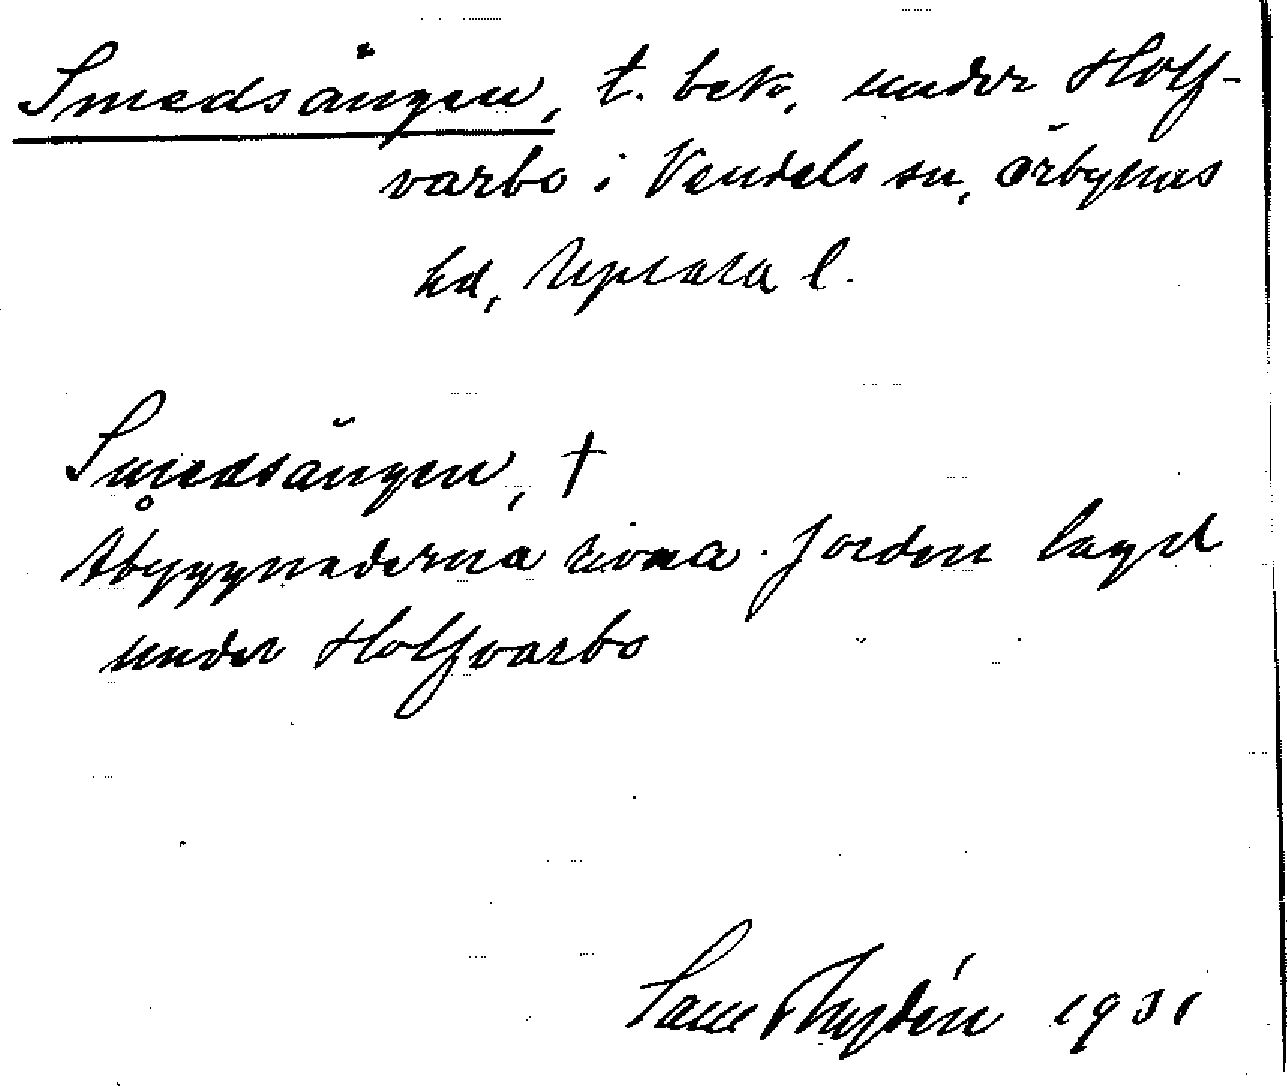 Smedsängen, t. bek. under Holf-
varbo i Vendels sn, Örbyhus
hd, Upsala l.
Smedsängen, †
Åbyggnaderna rivna. Jorden lagd
under Holfvarbo
1931